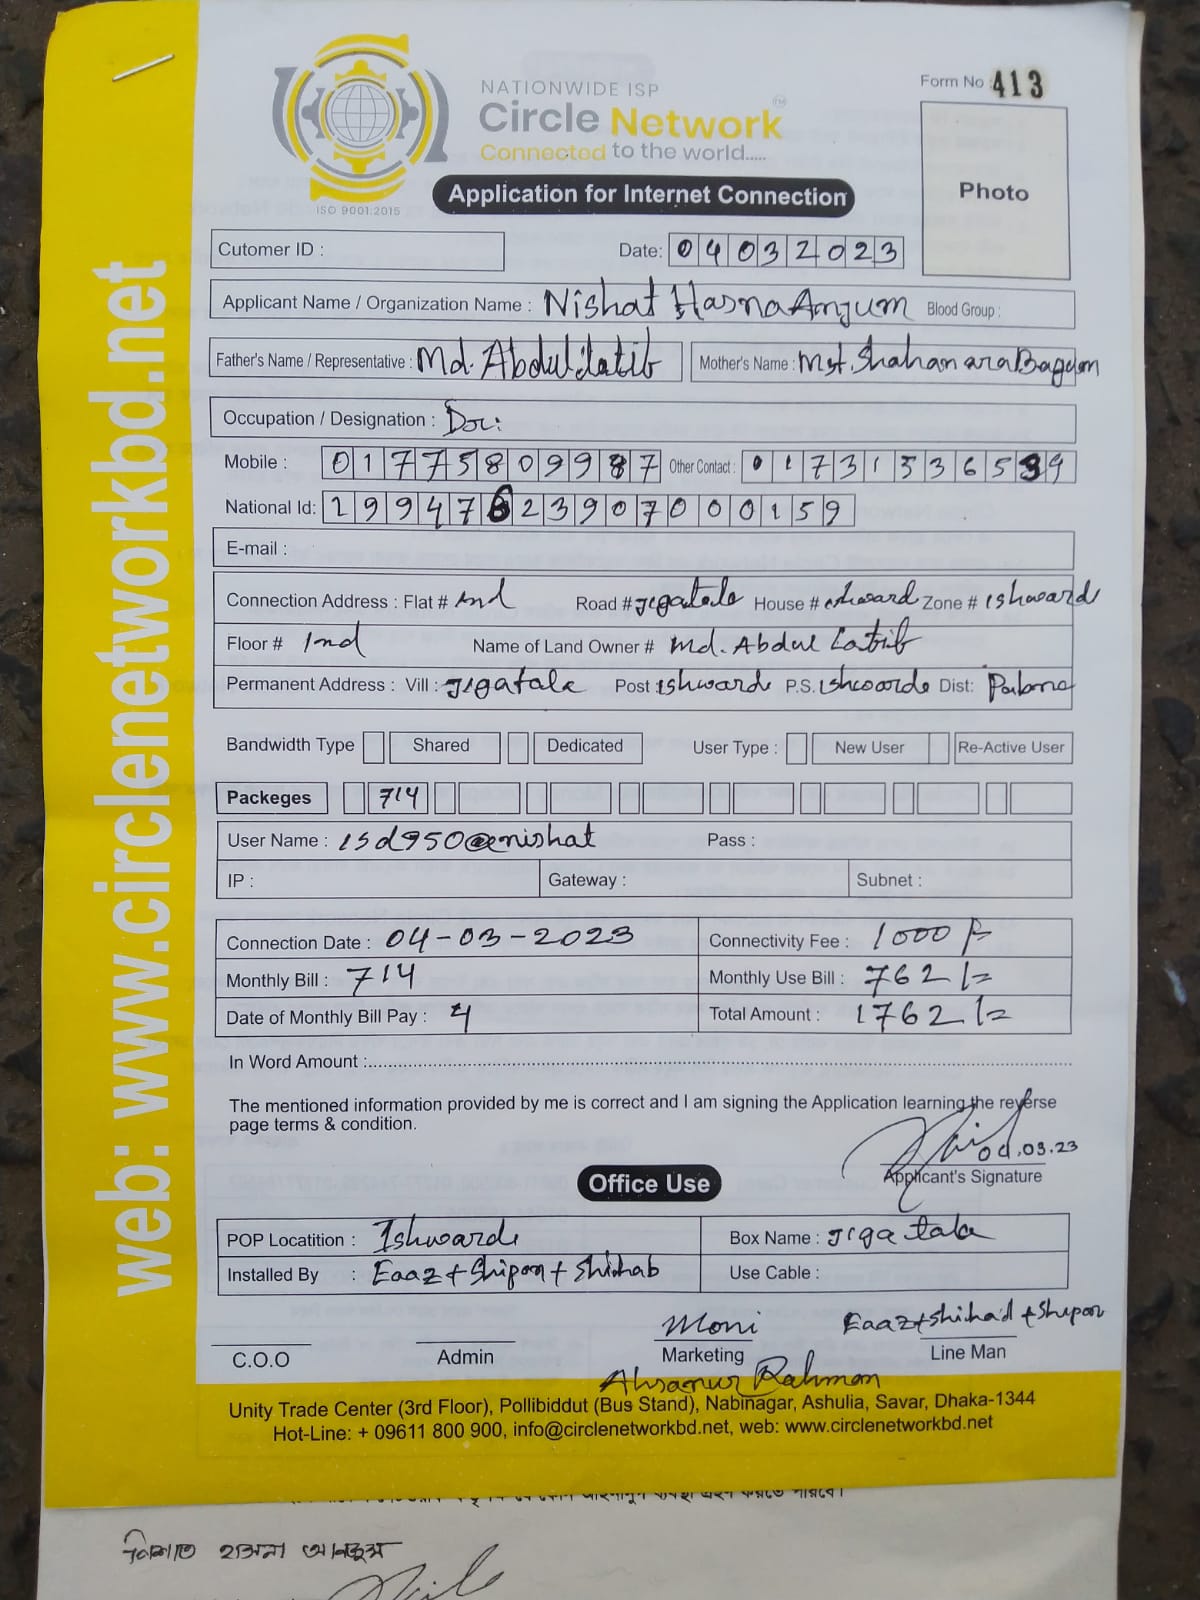 Form No 413
NATIONWIDE ISP
Circle Network TM
Connected to the world.....
ISO 9001:2015
Application for Internet Connection
Photo
Cutomer ID :
Date: 04032023
Applicant Name / Organization Name : Nishat Hasna Anjum Blood Group :
Father's Name / Representative : Md. Abdul Latib Mother's Name : Mst. Shahanara Bagum
Occupation / Designation :
Mobile : 01775809987 Other Contact : 01731536539
National Id: 19947623907000159
E-mail :
Connection Address : Flat # Road # Jigatala House # Zone # Ishwardi
Floor # Ind Name of Land Owner # Md. Abdul Latib
Permanent Address : Vill : Jigatala Post : Ishwardi P.S. Ishwardi Dist: Pabna
Bandwidth Type Shared Dedicated User Type : New User Re-Active User
Packeges 714
User Name : isd950@nishat Pass :
IP : Gateway : Subnet :
Connection Date : 04-03-2023 Connectivity Fee : 1000/=
Monthly Bill : 714 Monthly Use Bill : 762/=
Date of Monthly Bill Pay : 4 Total Amount : 1762/=
In Word Amount :
The mentioned information provided by me is correct and I am signing the Application learning the reverse
page terms & condition.
04.03.23
Applicant's Signature
Office Use
POP Locatition : Ishwardi Box Name : Jigatala
Installed By : Eaaz + Shipon + Shihab Use Cable :
Moni Eaaz + Shihad + Shipon
C.O.O Admin Marketing Line Man
Ahsanur Rahman
Unity Trade Center (3rd Floor), Pollibiddut (Bus Stand), Nabinagar, Ashulia, Savar, Dhaka-1344
Hot-Line: + 09611 800 900, info@circlenetworkbd.net, web: www.circlenetworkbd.net
web: www.circlenetworkbd.net
নিশাত হাসনা আনজুম